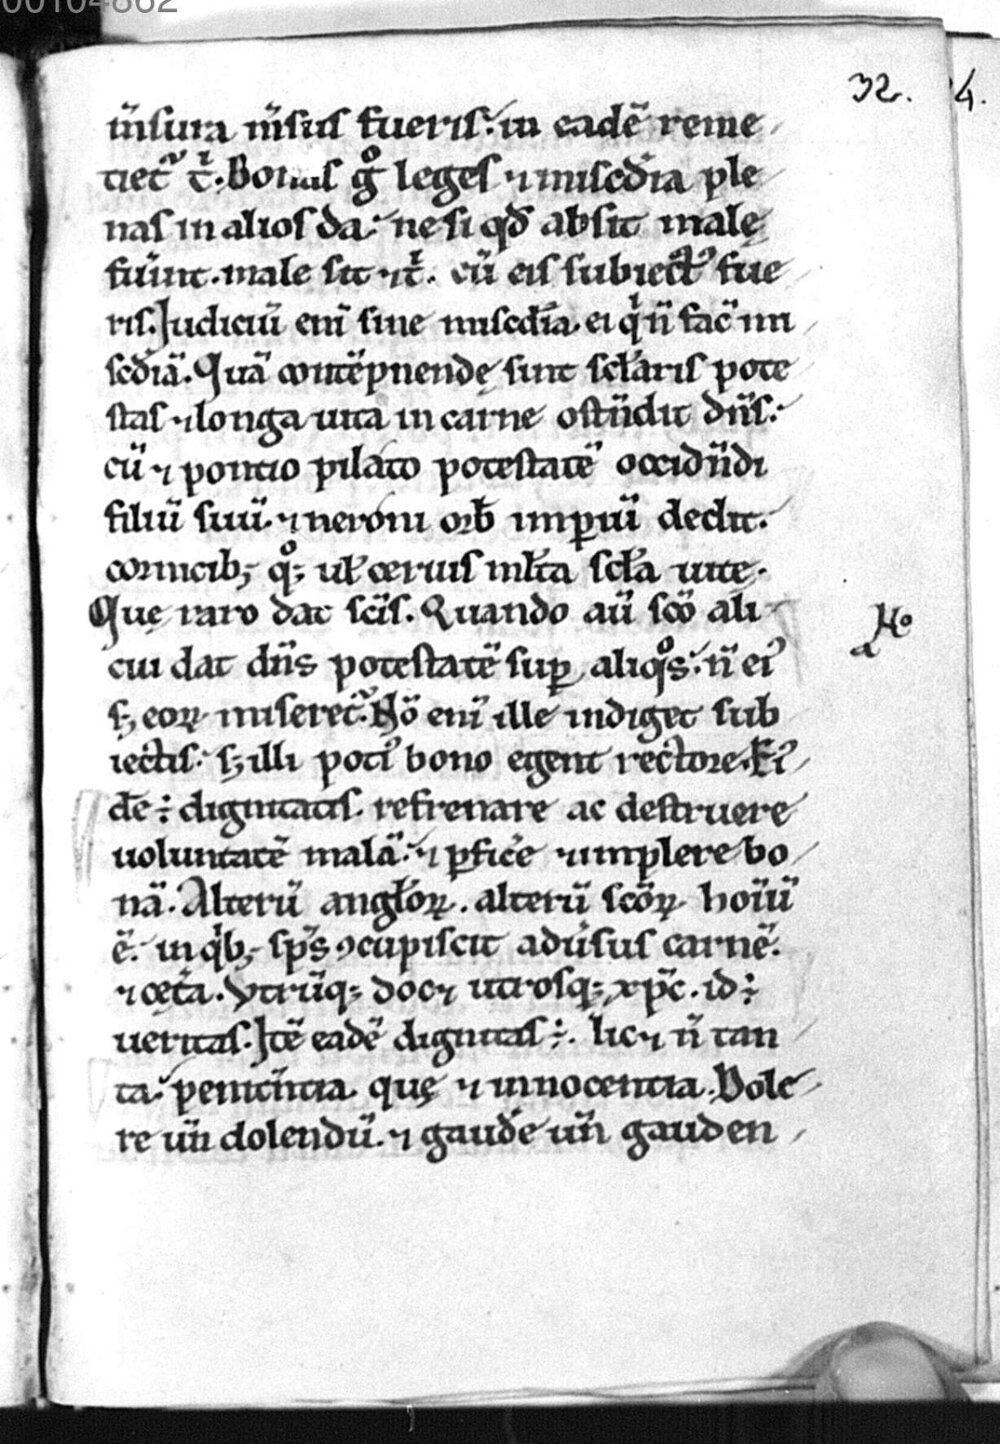 00104862
32. 4.
m̅sura m̅sus fueris. in eadē reme
tiet᷑ t̍. Bonas gͦ leges ⁊ misc̄dia ple
nas in alios da. ne si qd̄ absit malę
fuīnt. male sit ⁊ t̍. cū eis subiectꝰ fue
ris. Judiciū enī sine misc̄dia. ei qͥ n̄ fac̄ mi
sc̄diā. Quā contēpnendę sint sc̄laris pote
stas ⁊ longa uita in carne ostn̄dit dn̄s.
cū ⁊ pontio pilato potestatē occidn̄di
filiū suū. ⁊ neroni orb̄ imꝑiū dedit.
cornicib; qͦ; ul̄ ceruis ml̄ta sc̄la uite.
Quę raro dat sc̄is. Quando aū sc̄o ali
cui dat dn̄s potestatē suꝑ aliqͦs. n̄ eiꝰ
s; eoꝝ miseret᷑. Nō enī ille indiget sub
iectis. s; illi potiꝰ bono egent rectore. Eiꝰ
dē ÷ dignitatis. refrenare ac destruere
uoluntatē malā. ⁊ ꝑfic̄e ⁊ implere bo
nā. Alterū angl̄oꝝ. alterū sc̄oꝝ hoīū
ē. in qͥb; sp̄s ꝯcupiscit adūsus carnē.
⁊ cęt̄a. Vtrūq; docꝫ utrosq; xp̄c. id ÷
ueritas. Itē eadē dignitas ÷. licꝫ n̄ tan
ta. penitn̄tia quę ⁊ innocentia. Dole
re ūn dolendū. ⁊ gaud̄e ūn gauden
No
a